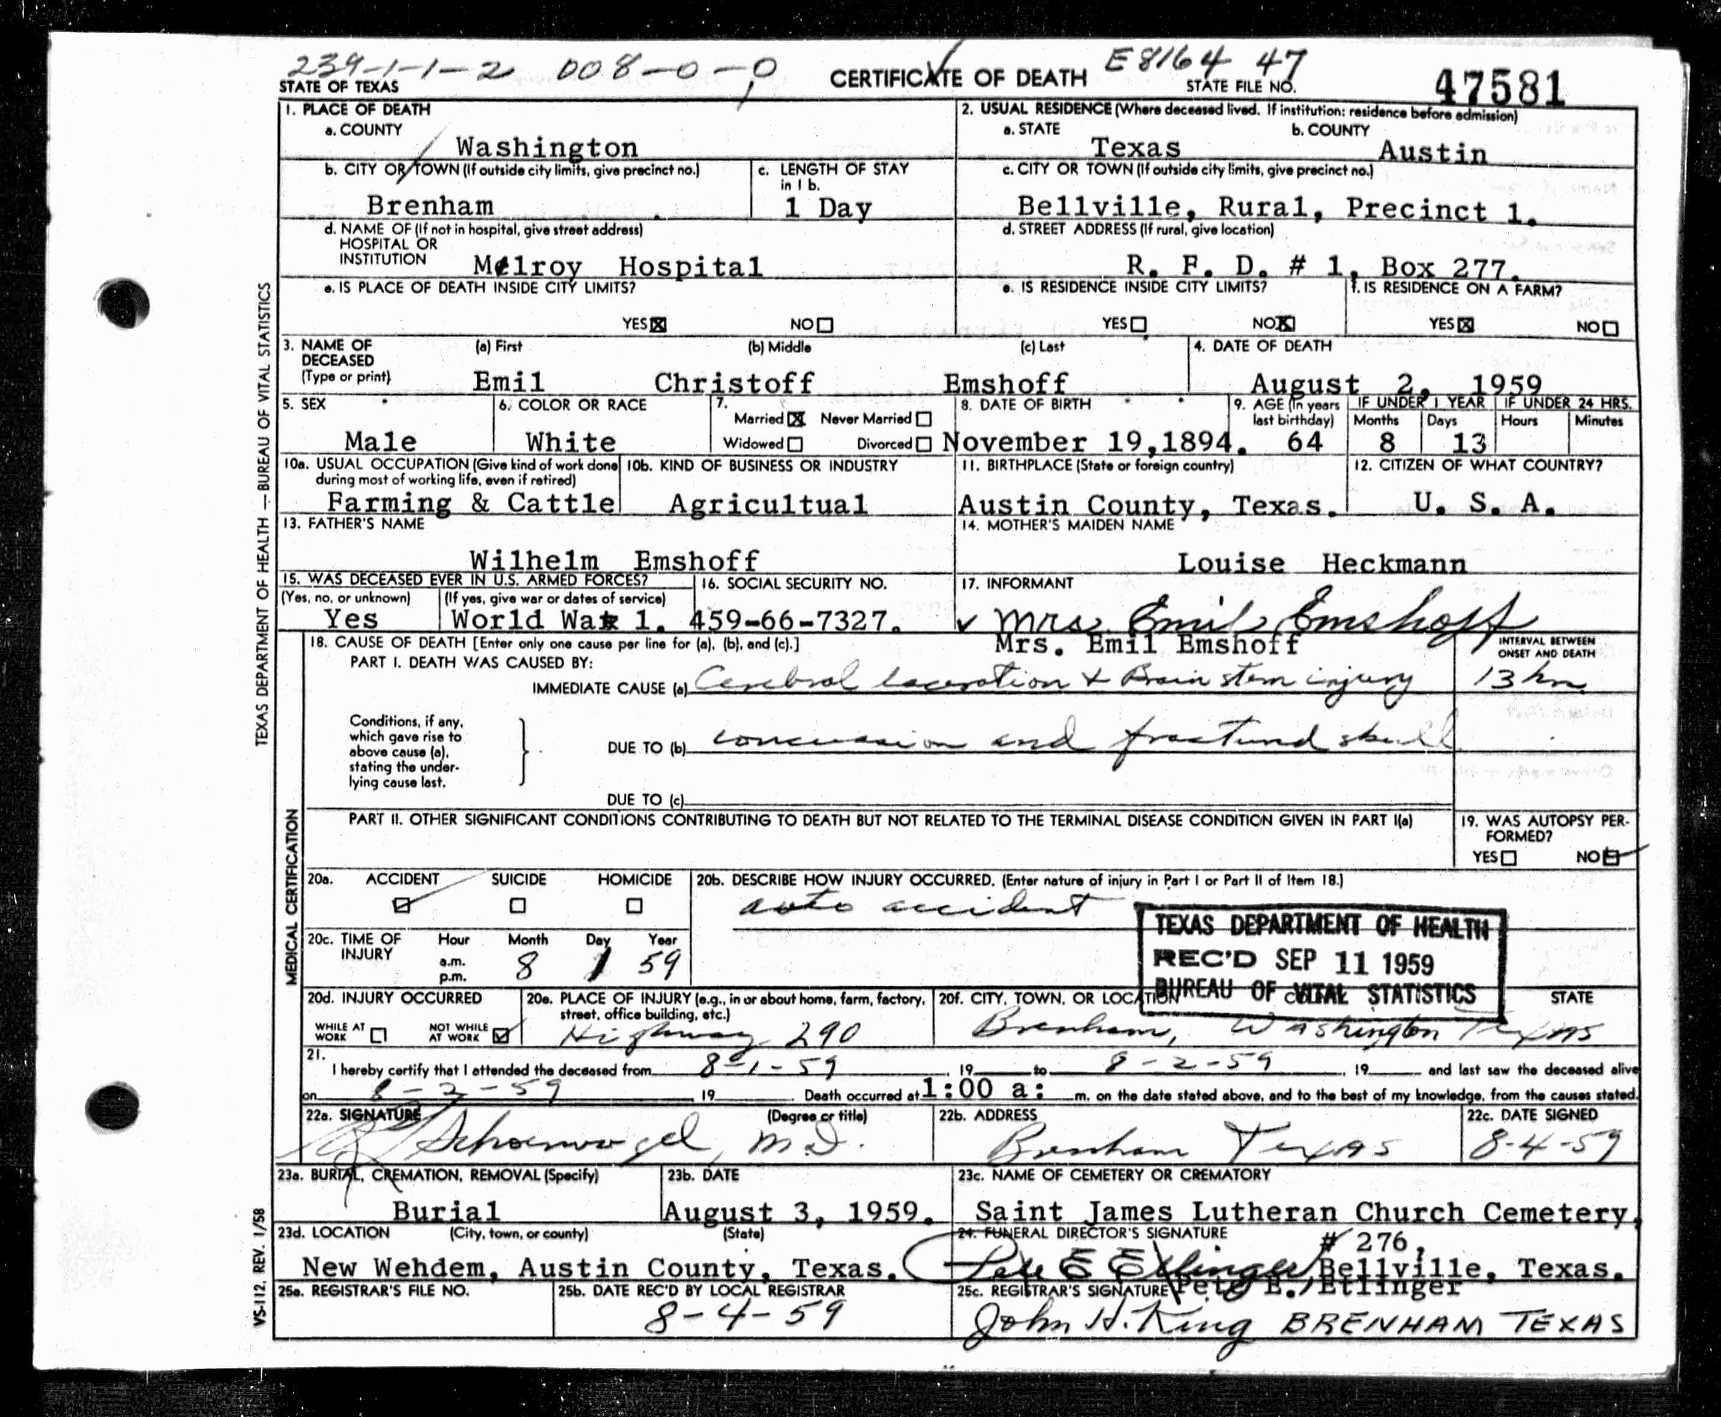 239-1-1-2 008-0-0 E8164 47
STATE OF TEXAS CERTIFICATE OF DEATH STATE FILE NO. 47581
1. PLACE OF DEATH
a. COUNTY
Washington
2. USUAL RESIDENCE (Where deceased lived. If institution: residence before admission)
a. STATE b. COUNTY
Texas Austin
b. CITY OR TOWN (If outside city limits, give precinct no.)
Brenham
c. LENGTH OF STAY
in 1 b.
1 Day
c. CITY OR TOWN (If outside city limits, give precinct no.)
Bellville, Rural, Precinct 1.
d. NAME OF (If not in hospital, give street address)
HOSPITAL OR
INSTITUTION
Melroy Hospital
d. STREET ADDRESS (If rural, give location)
R. F. D. # 1, Box 277.
e. IS PLACE OF DEATH INSIDE CITY LIMITS?
YES☒ NO☐
e. IS RESIDENCE INSIDE CITY LIMITS?
YES☐ NO☒
f. IS RESIDENCE ON A FARM?
YES☒ NO☐
3. NAME OF
DECEASED
(Type or print)
(a) First (b) Middle (c) Last
Emil Christoff Emshoff
4. DATE OF DEATH
August 2, 1959
5. SEX
Male
6. COLOR OR RACE
White
7.
Married☒ Never Married☐
Widowed☐ Divorced☐
8. DATE OF BIRTH
November 19,1894.
9. AGE (In years
last birthday)
64
IF UNDER 1 YEAR
Months Days
8 13
IF UNDER 24 HRS.
Hours Minutes
10a. USUAL OCCUPATION (Give kind of work done
during most of working life, even if retired)
Farming & Cattle
10b. KIND OF BUSINESS OR INDUSTRY
Agricultual
11. BIRTHPLACE (State or foreign country)
Austin County, Texas.
12. CITIZEN OF WHAT COUNTRY?
U. S. A.
13. FATHER'S NAME
Wilhelm Emshoff
14. MOTHER'S MAIDEN NAME
Louise Heckmann
15. WAS DECEASED EVER IN U.S. ARMED FORCES?
(Yes, no, or unknown) (If yes, give war or dates of service)
Yes World War 1.
16. SOCIAL SECURITY NO.
459-66-7327.
17. INFORMANT
Mrs. Emil Emshoff
Mrs. Emil Emshoff
18. CAUSE OF DEATH [Enter only one cause per line for (a), (b), and (c).]
PART I. DEATH WAS CAUSED BY:
INTERVAL BETWEEN
ONSET AND DEATH
IMMEDIATE CAUSE (a) Cerebral laceration & Brain stem injury 13 hrs
Conditions, if any,
which gave rise to
above cause (a),
stating the under-
lying cause last.
DUE TO (b) concussion and fractured skull
DUE TO (c)
PART II. OTHER SIGNIFICANT CONDITIONS CONTRIBUTING TO DEATH BUT NOT RELATED TO THE TERMINAL DISEASE CONDITION GIVEN IN PART I(a)
19. WAS AUTOPSY PER-
FORMED?
YES☐ NO☑
20a. ACCIDENT SUICIDE HOMICIDE
☑ ☐ ☐
20b. DESCRIBE HOW INJURY OCCURRED. (Enter nature of injury in Part I or Part II of Item 18.)
auto accident
TEXAS DEPARTMENT OF HEALTH
REC'D SEP 11 1959
BUREAU OF VITAL STATISTICS
20c. TIME OF
INJURY
Hour Month Day Year
a.m.
p.m.
8 1 59
20d. INJURY OCCURRED
WHILE AT
WORK ☐
NOT WHILE
AT WORK ☑
20e. PLACE OF INJURY (e.g., in or about home, farm, factory,
street, office building, etc.)
Highway 290
20f. CITY, TOWN, OR LOCATION STATE
Brenham, Washington Texas
21.
I hereby certify that I attended the deceased from 8-1-59, 19 to 8-2-59, 19 and last saw the deceased alive
on 8-2-59, 19 . Death occurred at 1:00 a: m. on the date stated above, and to the best of my knowledge, from the causes stated.
22a. SIGNATURE (Degree or title)
Schoenvogel, M.D.
22b. ADDRESS
Brenham Texas
22c. DATE SIGNED
8-4-59
23a. BURIAL, CREMATION, REMOVAL (Specify)
Burial
23b. DATE
August 3, 1959.
23c. NAME OF CEMETERY OR CREMATORY
Saint James Lutheran Church Cemetery,
23d. LOCATION (City, town, or county) (State)
New Wehdem, Austin County, Texas.
24. FUNERAL DIRECTOR'S SIGNATURE
# 276,
Pete E Etlinger Bellville, Texas.
Pete E. Etlinger
25a. REGISTRAR'S FILE NO.
25b. DATE REC'D BY LOCAL REGISTRAR
8-4-59
25c. REGISTRAR'S SIGNATURE
John H. King BRENHAM TEXAS
TEXAS DEPARTMENT OF HEALTH — BUREAU OF VITAL STATISTICS
MEDICAL CERTIFICATION
VS-112, REV. 1/58